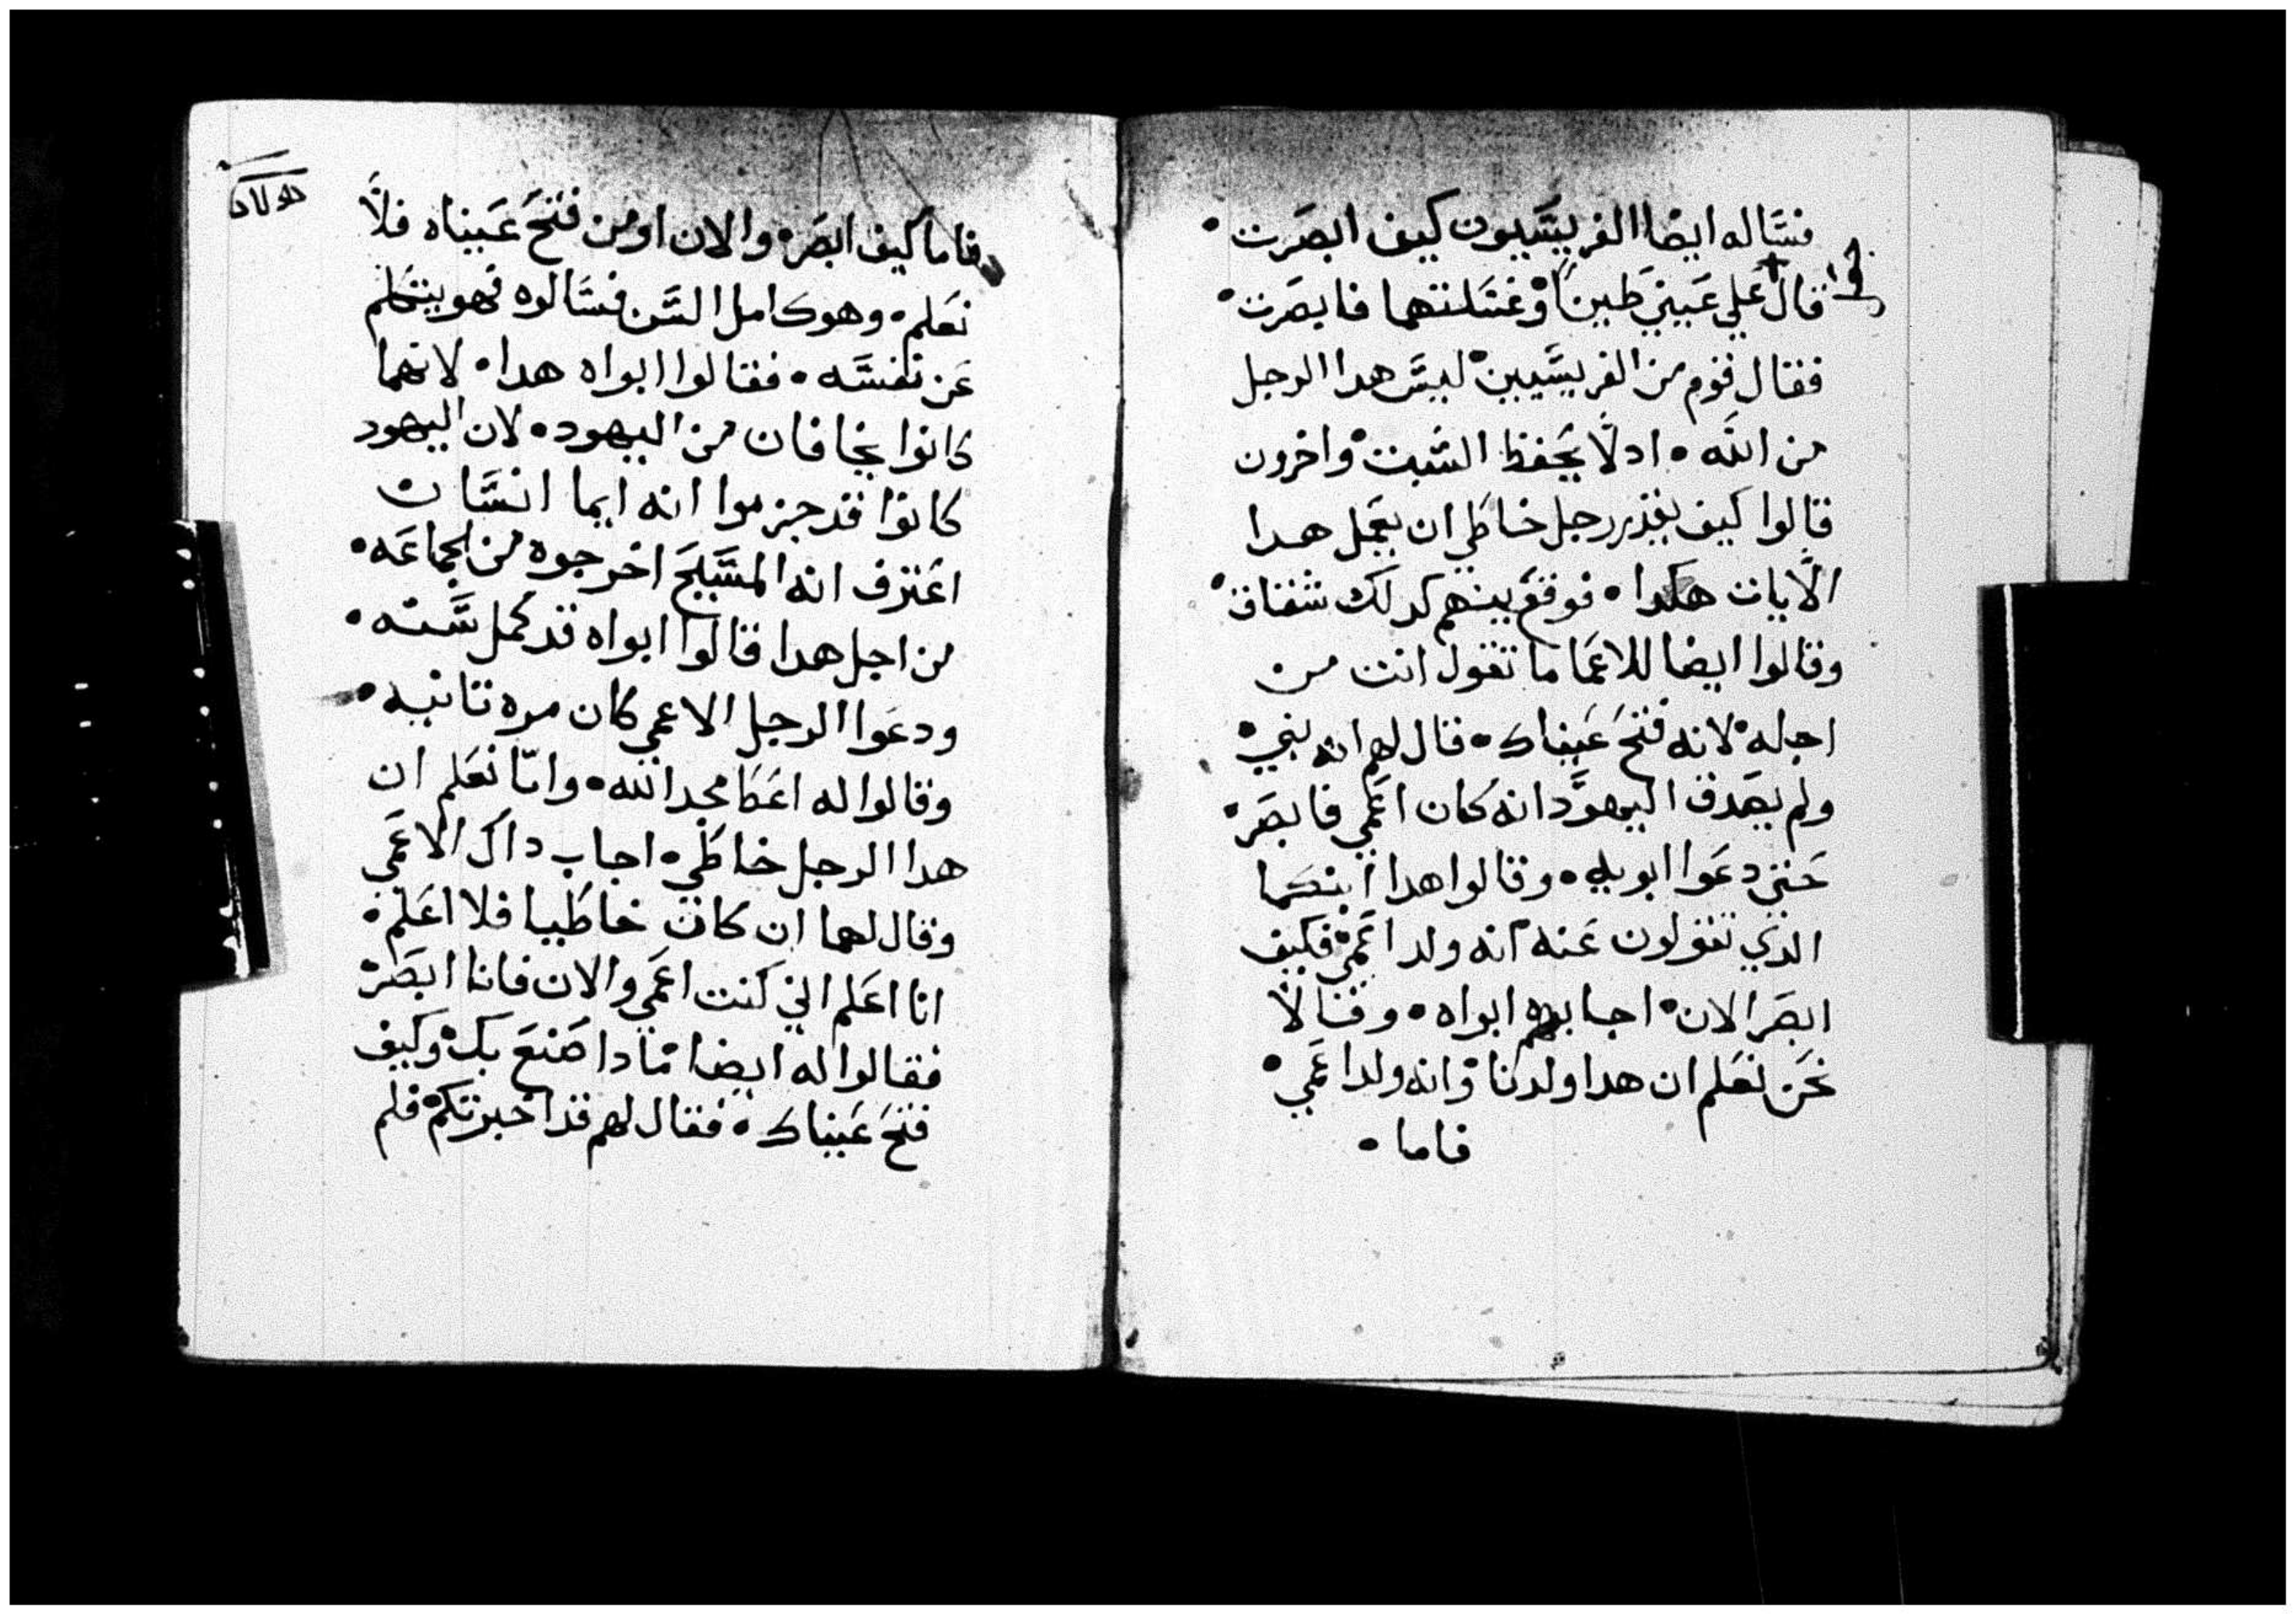 فسَّاله ايضا الفريسَّيون كيف ابصَرت •
قال علي عَيني طينًا وغسَّلتهما فابصَرت •
فقال قوم من الفريسَّيين ليسَّ هدا الرجل
من الله • ادلا يحَفظ السَّبت واخرون
قالوا كيف يقدر رجل خاطي ان يعَمل هدا
الايات هكدا • فوقعَ بينهم كدلك شقاق •
وقالوا ايضا للاعَما ما تقول انت من
اجله لانه فتحَ عَيناك • قال لهم انه نبي •
ولم يصَدق اليهود انه كان اعَمي فابصَر •
حَتي دعَوا ابويه • وقالوا هدا ابنكما
الدي تقولون عَنه انه ولد اعَمي فكيف
ابصَر الان • اجابهم ابواه • وقالا
نحَن نعَلم ان هدا ولدنا وانه ولد اعَمي •
فاما •
فاما كيف ابصَر • والان او من فتحَ عَيناه فلا
نعَلم • وهو كامل السَّن فسَّالوه فهو يتكلم
عَن نفسَّه • فقالوا ابواه هدا • لانهما
كانوا يخافان من اليهود • لان اليهود
كانوا قد جزموا انه ايما انسَّان
اعَترف انه المسَّيحَ اخرجوه من الجماعَه •
من اجل هدا قالوا ابواه قد كمل سَّنه •
ودعَوا الرجل الاعمي كان مره تانيه •
وقالوا له اعَطا مجد الله • وانّا نعَلم ان
هدا الرجل خاطي • اجاب داك الاعَمي
وقال لهما ان كان خاطيا فلا اعَلم •
انا اعَلم اني كنت اعَمي والان فانا ابصَر
فقالوا له ايضا مادا صَنعَ بك وكيف
فتحَ عَيناك • فقال لهم قد اخبرتكم فلم